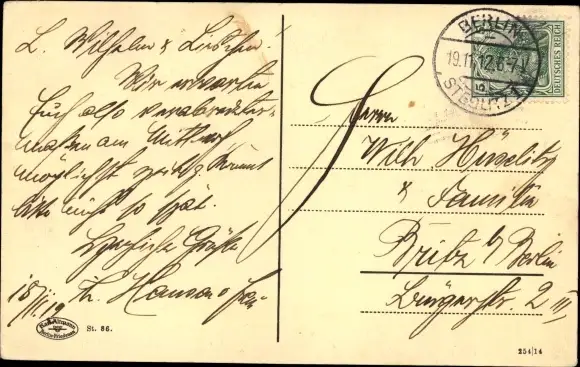 L. Wilhelm & Lieschen!
Wir erwarten
Euch also verabredeter-
maßen am Mittwoch
möglichst zeitig. Kommt
bitte nicht so spät.
Herzliche Grüße
18/11.12 Th. Hansen u. Frau
St. 86.
BERLIN
19.11.12.6-7N
STEGLITZ 1
DEUTSCHES REICH
Herrn
Wilh.
& Familie
Britz b/ Berlin
Bürgerstr. 2 III
254/14